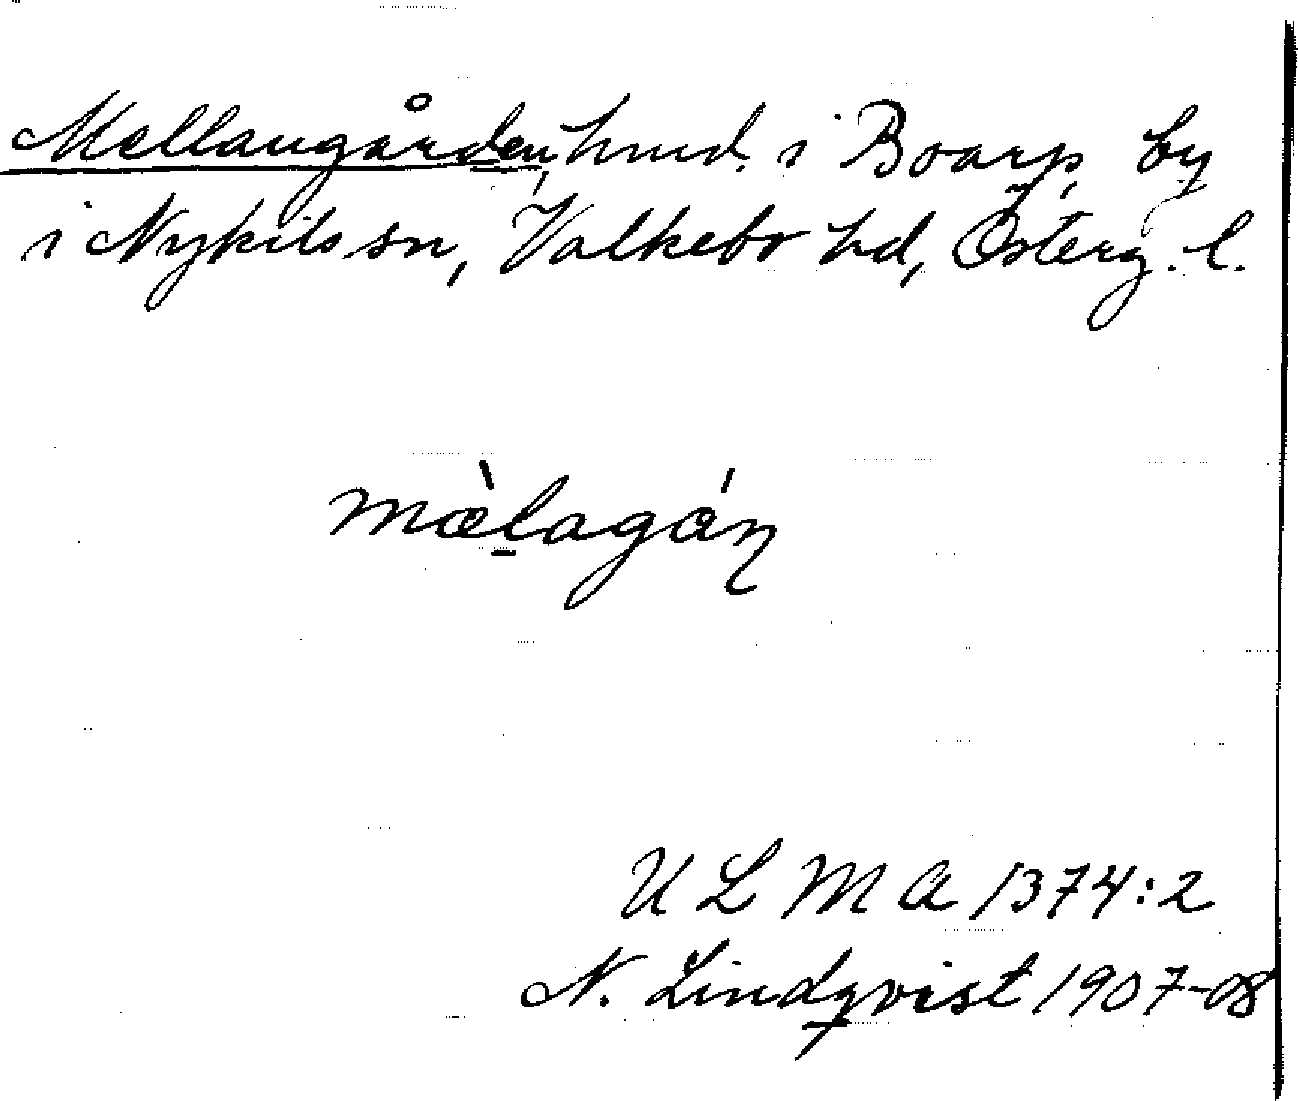 Mellangården, hmd. i Boarp, by
i Nykils sn, Valkebo hd, Österg. l.
mæ̀lagáɳ
U L M A 1374:2
N. Lindqvist 1907-08